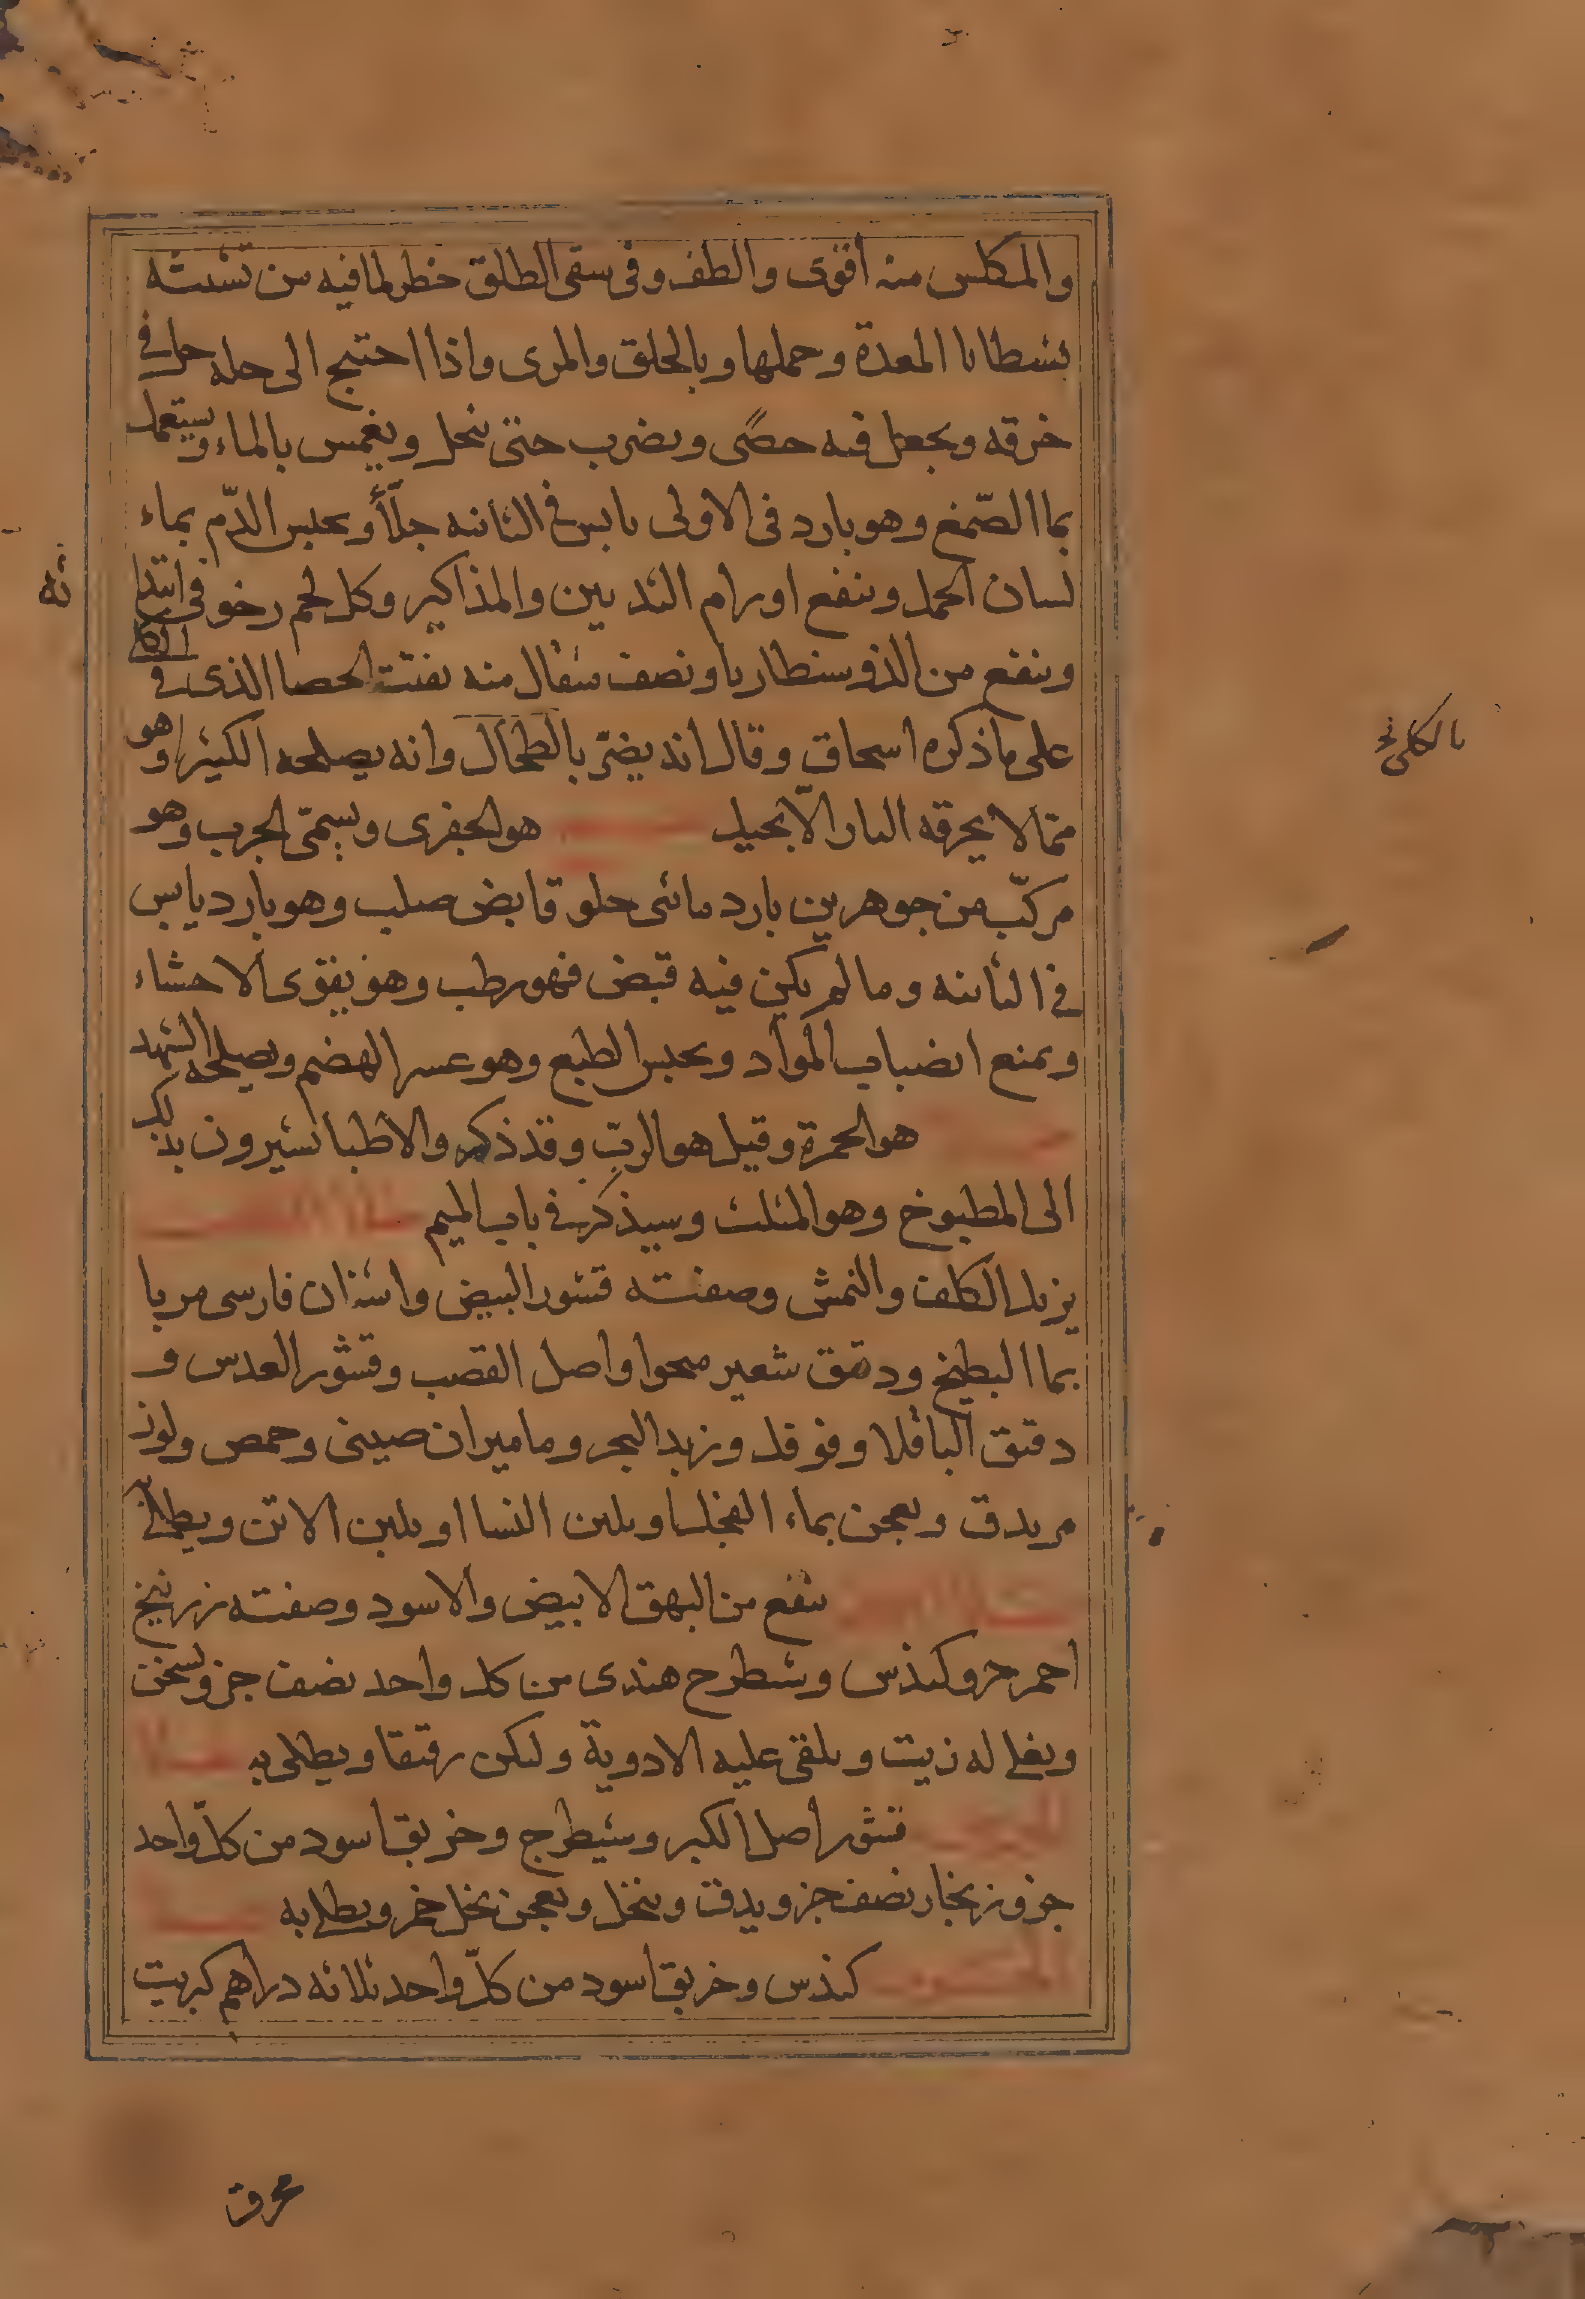 والمكلس منه اقوى والطف وفى سقى الطلق خطر لما فيه من تشبثه
بشظايا المعدة وحملها وبالحلق والمرى واذا احتيج الى حله جعل فى
خرقه ويجعل فيه حصًى ويضرب حتى ينحل ويغمس بالماء ويستعمل
بما الصّمغ وهو بارد فى الاولى يابس فى الثانيه جلّاءً ويحبس الدّم بماء
لسان الحمل وينفع اورام الثديين والمذاكير وكل لحم رخو فى ابتدا
ئه
وينفع من الذوسنطاريا ونصف مثقال منه يفتت الحصا الذى فى
بالكلى
على ما ذكره اسحاق وقال انه يضرّ بالطحال وانه يصلحه الكثيرا وهو
ممّا لا يحرقه النار الّا بحيل هو الجفرى ويسمّى الجرب وهو
مركّب من جوهرين بارد مائى حلو قابض صلب وهو بارد يابس
فى الثانيه وما لم يكن فيه قبض فهو رطب وهو يقوى الاحشاء
ويمنع انضباب المواد ويحبس الطبع وهو عسر الهضم ويصلحه الشهد
هو الخمرة وقيل هو الرب وقد ذكر والاطبا يشيرون بذلك
الى المطبوخ وهو المثلث وسيذكر فى باب الميم
يزيل الكلف والنمش وصفته قشور البيض واشنان فارسى مربا
بما البطيخ ودقيق شعير واصل القصب وقشور العدس و
دقيق الباقلا وفوفل وزبد البحر وماميران صينى وحمص ولوز
مر يدق ويعجن بماء الفجل او بلبن النسا او بلبن الاتن ويطلى
ينفع من البهق الابيض والاسود وصفته زرنيخ
احمر جزو كندس وشطرح هندى من كل واحد نصف جزو
ويغلى له زيت ويلقى عليه الادوية وليكن رقيقا ويطلى به
قشور اصل الكبر وشيطرج وخربق اسود من كلّ واحد
جزو زنجار نصف جزو يدق وينخل ويعجن بخل خمر ويطلى به
كندس وخربق اسود من كلّ واحد ثلاثه دراهم كبريت